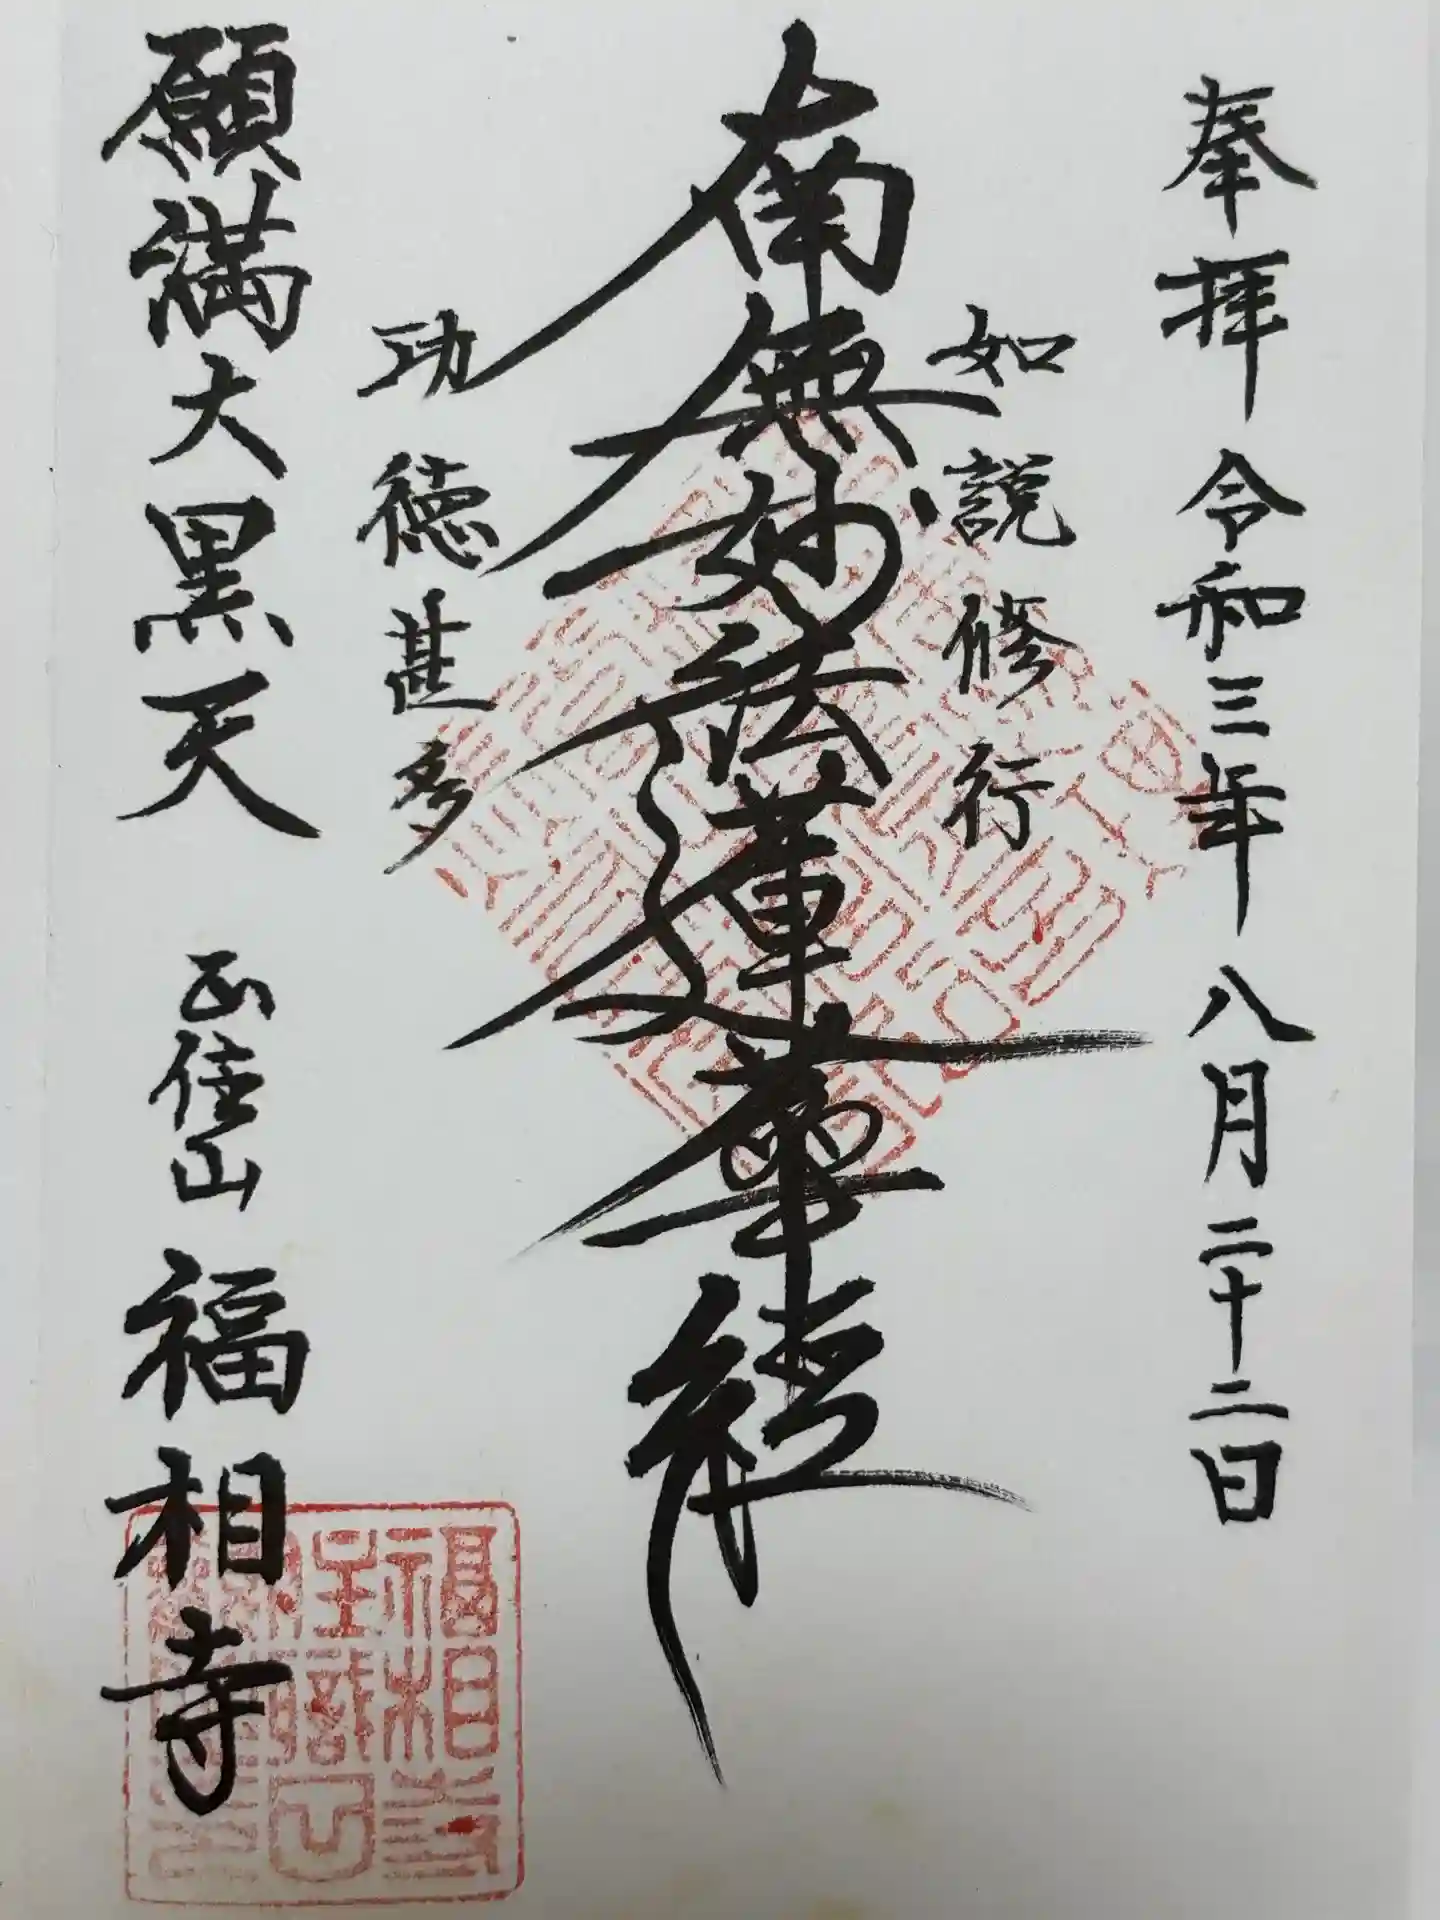 奉拝 令和三年八月二十二日
如説修行
南無妙法蓮華経
功徳甚多
願満大黒天 正住山 福相寺
福相寺
住職